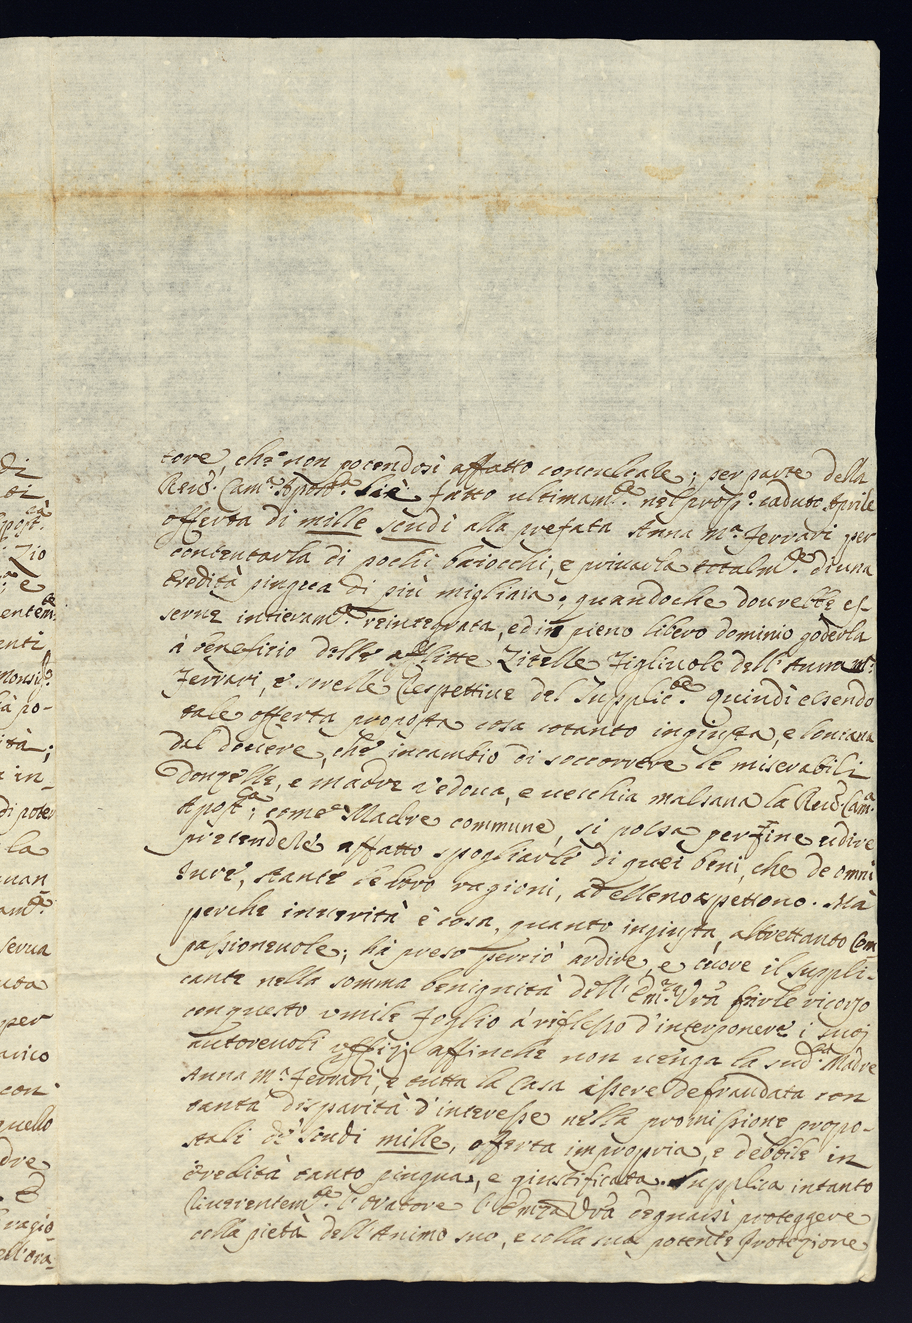 tore, che non potendosi affatto conculcale; per parte della
Revd. Camª Apostª. si è fatto ultimamte. nel prosso. caduto Aprile
offerta di mille scudi alla prefata Anna Mª. Ferrari per
contentarla di pochi baiocchi, e privarla totalmte. di una
Eredità pingua di più migliaia; quandoche dovrebbe es-
serne intieramte. reintegrata, ed in pieno libero dominio goderla
à beneficio delle afflitte Zitelle Figliuole dell'Anna Mª.
Ferrari, e sorelle Respettive del Supplicte. Quindi essendo
tale offerta proposta cosa cotanto ingiusta, e lontana
dal dovere, che incambio di soccorrere le miserabili
Donzelle, e Madre vedova, e vecchia malsana la Revd. Camª.
Apostca., come Madre commune, si possa perfine udire
pretendere affatto spogliarle di quei beni, che de omni
Jure, stante le loro ragioni, ad elleno aspettono. Mà
perche inverità è cosa, quanto ingiusta, altrettanto Com
passionevole; hà preso perciò ardire, e cuore il suppli-
cante nella somma benignità dell'Emza. Vrã farle ricorso
con questo umile foglio à riflesso d'interponere i suoj
autorevoli uffizj affinche non venga la sudta. Madre
Anna Mª. Ferrari, e tutta la Casa essere defraudata con
tanta disparità d'interesse nella promissione propo-
stali di scudi mille, offerta impropria, e debbile in
eredità tanto pingua, e giustificata. Supplica intanto
Riverentemte. l'Oratore l'Emza Vrã degnarsi proteggere
colla pietà dell'Animo suo, e colla sua potente protezione